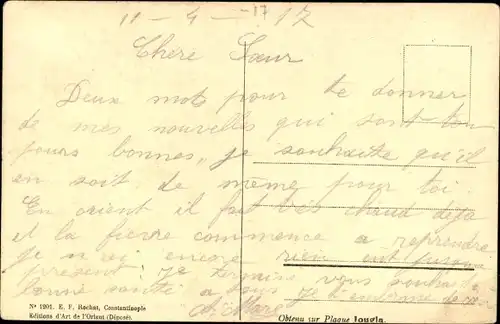 11 - 4 - 17
Chère Sœur
Deux mots pour te donner
de mes nouvelles qui sont tou
jours bonnes, je souhaite qu'il
en soit de même pour toi.
En orient il fait très chaud déjà
et la fievre commence a reprendre
je n'ai encore rien eut jusqua
présent je termine vous souhait
bonne santé a tous
Nº 1201. E. F. Rochat, Constantinople
Editions d'Art de l'Orient (Déposé).
Obtenu sur Plaque Jougla.